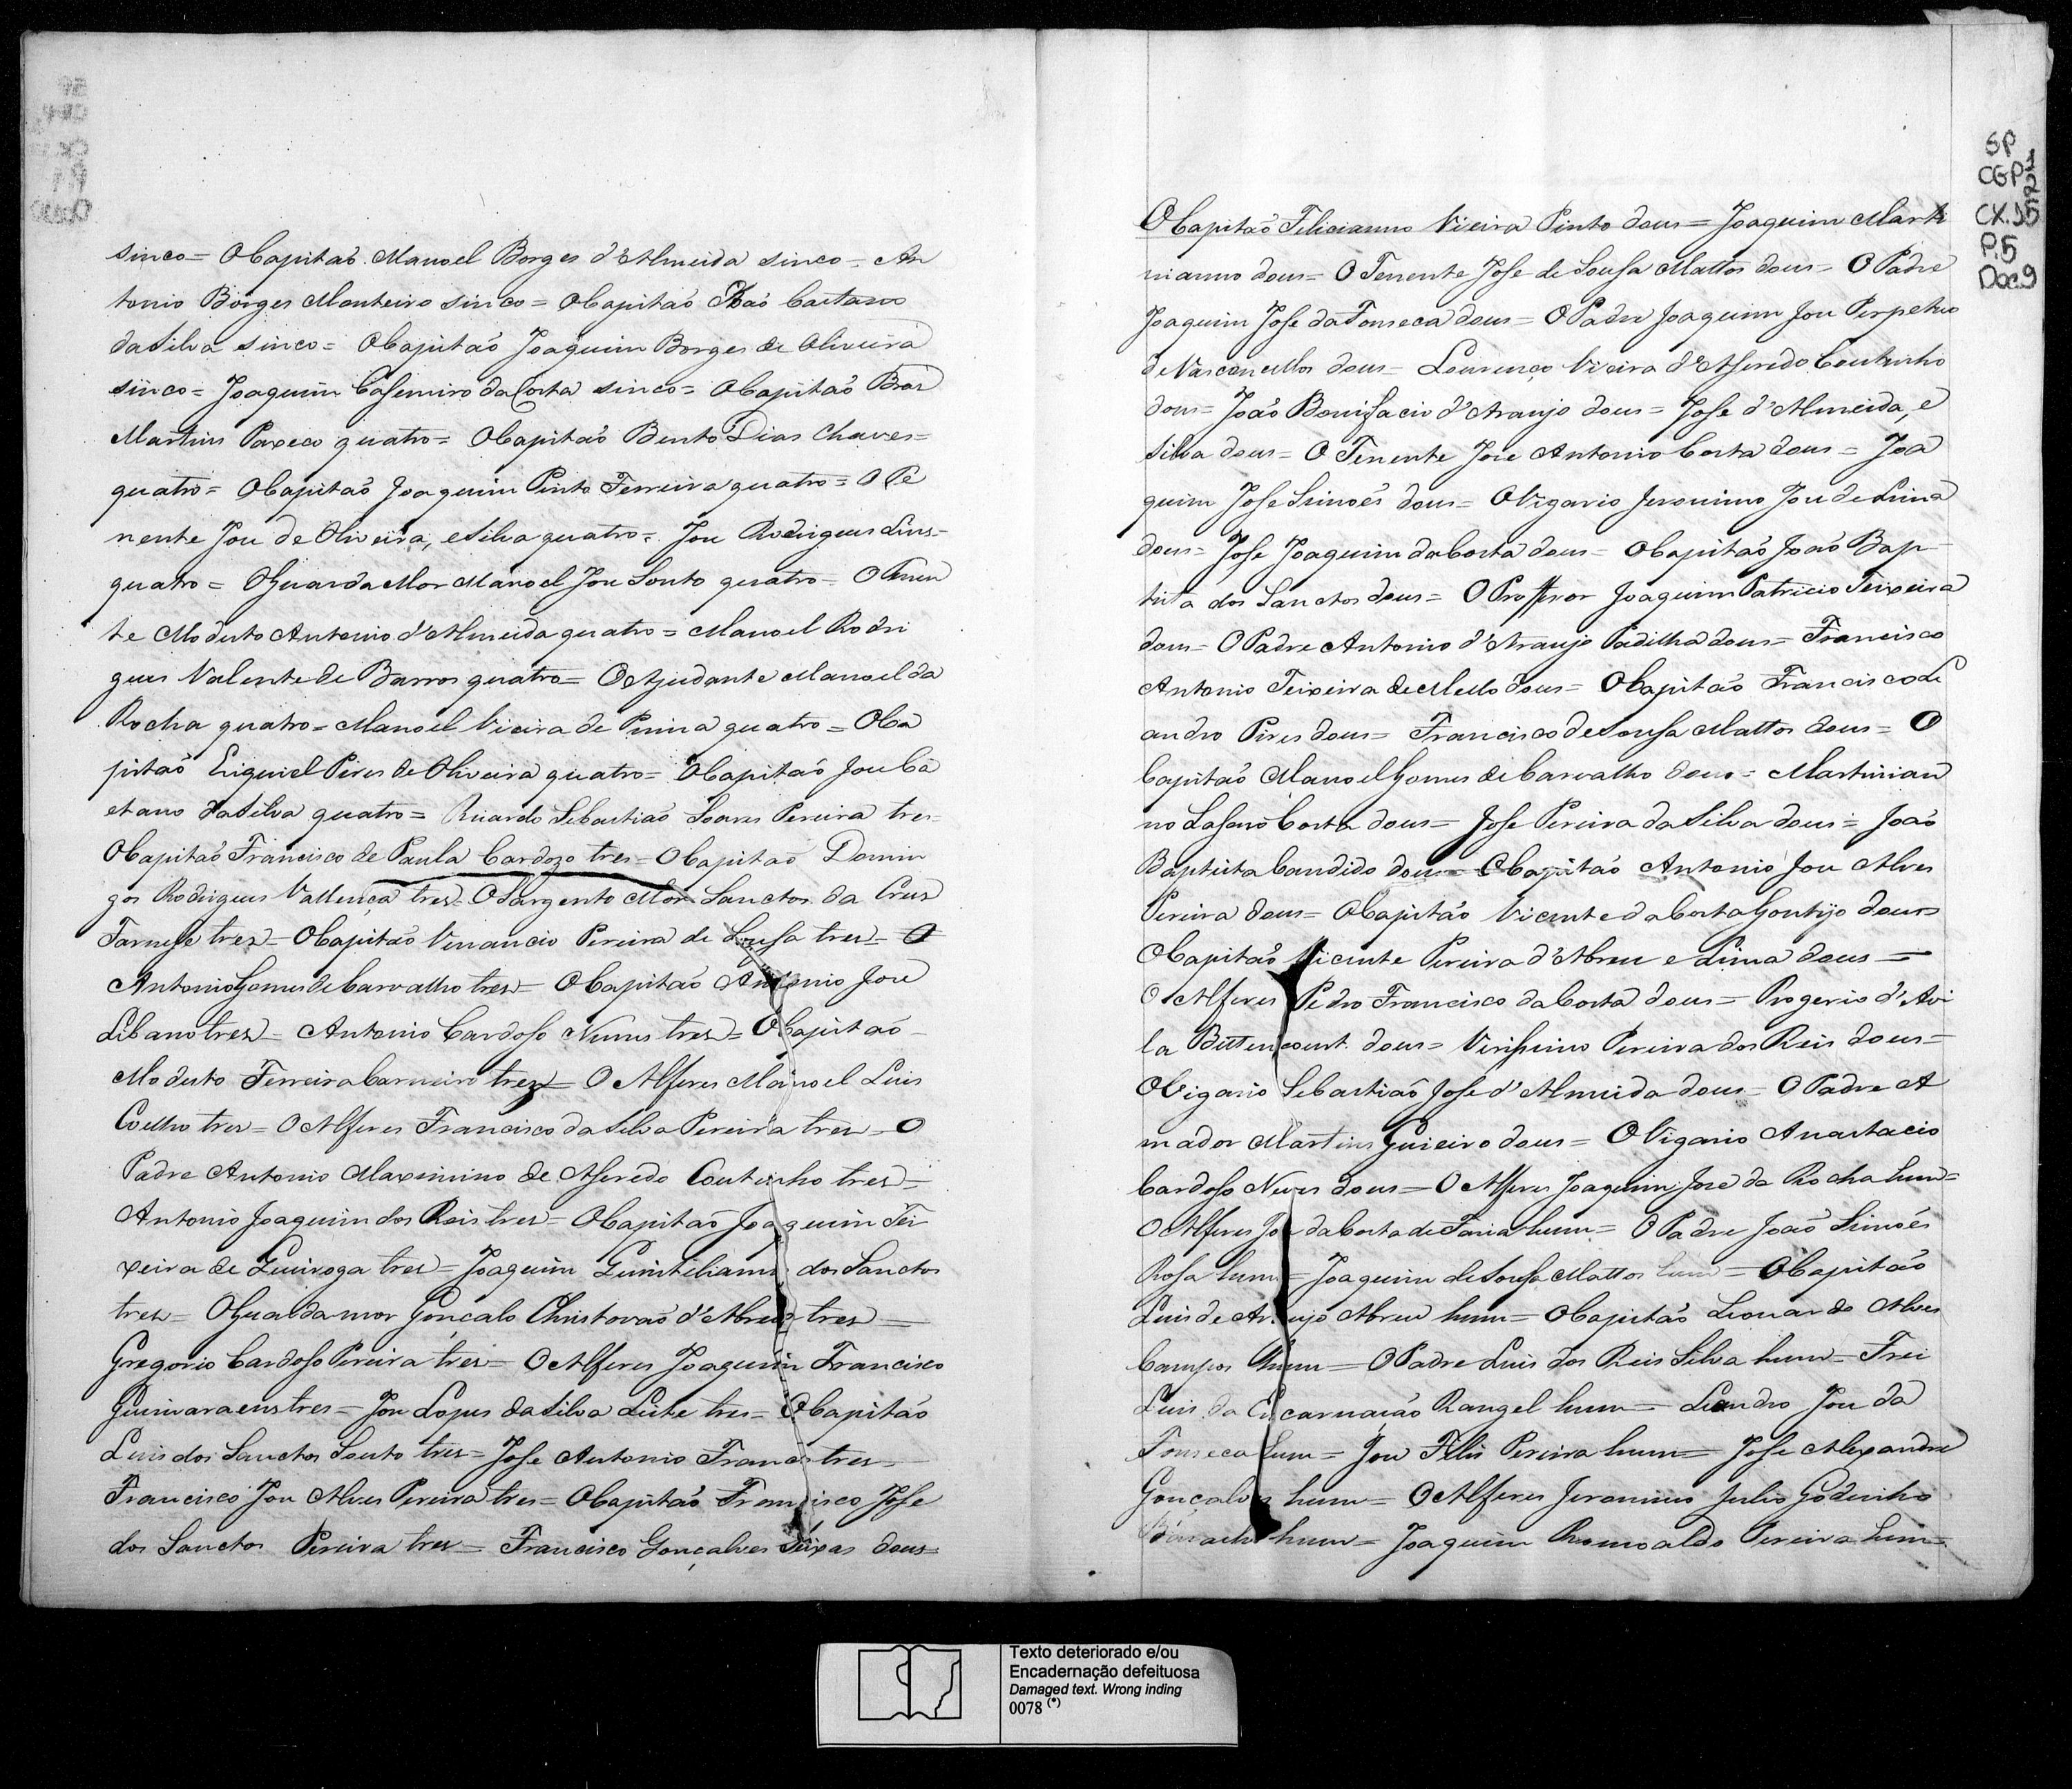 sinco = O Capitaõ Manoel Borges d'Almeida sinco = An
tonio Borges Monteiro sinco = O Capitaõ Joaõ Caetano
da Silva sinco = O Capitaõ Joaquim Borges de Oliveira
sinco = Joaquim Casemiro da Costa sinco = O Capitaõ Bras
Martins Paxeco quatro = O Capitaõ Bento Dias Chaves =
quatro = O Capitaõ Joaquim Pinto Ferreira quatro = O Te
nente Jose de Oliveira, e Silva quatro = Jose Rodrigues Lins =
quatro = O Guarda Mor Manoel Jose Souto quatro = O Tenen
te Modesto Antonio d'Almeida quatro = Manoel Rodri
gues Valente de Barros quatro = O Ajudante Manoel da
Rocha quatro = Manoel Vieira de Pinna quatro = O Ca
pitaõ Eziquiel Peres de Oliveira quatro = O Capitaõ Jose Ca
etano da Silva quatro = Ricardo Sebastiaõ Soares Pereira tres =
O Capitaõ Francisco de Paula Cardozo tres = O Capitaõ Domin
gos Rodrigues Vallença tres = O Sargento Mor Sanctos da Crus
Farnese tres = O Capitaõ Venancio Pereira de Sousa tres = O
Antonio Gomes de Carvalho tres = O Capitaõ Antonio Jose
Libano tres = Antonio Cardoso Nunes tres = O Capitaõ
Modesto Ferreira Carneiro tres = O Alferes Manoel Luis
Coelho tres = O Alferes Francisco da Silva Pereira tres = O
Padre Antonio Maximino de Aseredo Coutinho tres =
Antonio Joaquim dos Reis tres = O Capitaõ Joaquim Tei
xeira de Quiroga tres = Joaquim Quintiliano dos Sanctos
tres = O Guarda mor Gonçalo Christovaõ d'Abreu tres =
Gregorio Cardoso Pereira tres = O Alferes Joaquim Francisco
Guimaraens tres = Jose Lopes da Silva Leite tres = O Capitaõ
Luis dos Sanctos Souto tres = Jose Antonio Franco tres =
Francisco Jose Alves Pereira tres = O Capitaõ Francisco Jose
dos Sanctos Pereira tres = Francisco Gonçalves Seixas dous =
SP
CGP 1
2
CX. 15
P.5
Doc.9
O Capitaõ Felicianno Vieira Pinto dous = Joaquim Marti
nianno dous = O Tenente Jose de Sousa Mattos dous = O Padre
Joaquim Jose da Fonseca dous = O Padre Joaquim Jose Perpetuo
de Vasconcellos dous = Lourenço Vieira d'Aseredo Coutinho
dous = Joaõ Bonifacio d'Araujo dous = Jose d'Almeida, e
Silva dous = O Tenente Jose Antonio Costa dous = Joa
quim Jose Simoẽs dous = O Vigario Jeronimo Jose de Lima
dous = Jose Joaquim da Costa dous = O Capitaõ Joaõ Bap
tista dos Sanctos dous = O Professor Joaquim Patricio Teixeira
dous = O Padre Antonio d'Araujo Padilha dous = Francisco
Antonio Teixeira de Mello dous = O Capitaõ Francisco Le
andro Pires dous = Francisco de Sousa Mattos dous = O
Capitaõ Manoel Gomes de Carvalho dous = Martinian
no Costa dous = Jose Pereira da Silva dous = Joaõ
Baptista Candido dous = O Capitaõ Antonio Jose Alves
Pereira dous = O Capitaõ Vicente da Costa Gontijo dous =
O Capitaõ Vicente Pereira d'Abreu e Lima dous =
O Alferes Pedro Francisco da Costa dous = Rogerio d'Avi
la Bittencourt dous = Verissimo Pereira dos Reis dous =
O Vigario Sebastiaõ Jose d'Almeida dous = O Padre A
mador Martins dous = O Vigario Anastacio
Cardoso Neves dous = O Alferes Joaquim Jose da Rocha hum =
O Alferes Jose da Costa de Faria hum = O Padre Joaõ Simoẽs
Rosa hum = Joaquim de Sousa Mattos hum = O Capitaõ
Luis de Araujo Abreu hum = O Capitaõ Leonardo Alves
Campos hum = O Padre Luis dos Reis Silva hum = Frei
Luis da Encarnaçaõ Rangel hum = Leandro Jose da
Fonseca hum = Jose Felis Pereira hum = Jose Alexandre
Gonçalves hum = O Alferes Jeronimo Julio Godinho
hum = Joaquim Romoaldo Pereira hum =
Texto deteriorado e/ou
Encadernação defeituosa
Damaged text. Wrong inding
0078 (*)